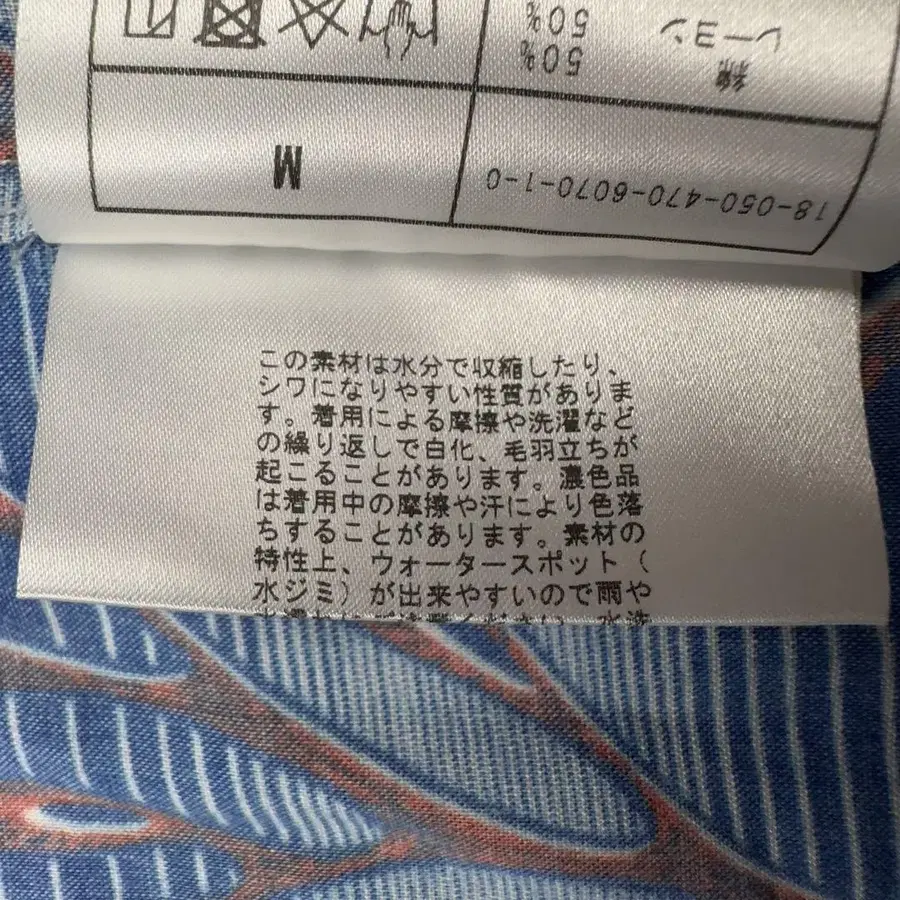 綿 50%
レーヨン 50%
M
18-050-470-6070-1-0
この素材は水分で収縮したり、
シワになりやすい性質がありま
す。着用による摩擦や洗濯など
の繰り返しで白化、毛羽立ちが
起こることがあります。濃色品
は着用中の摩擦や汗により色落
ちすることがあります。素材の
特性上、ウォータースポット（
水ジミ）が出来やすいので雨や